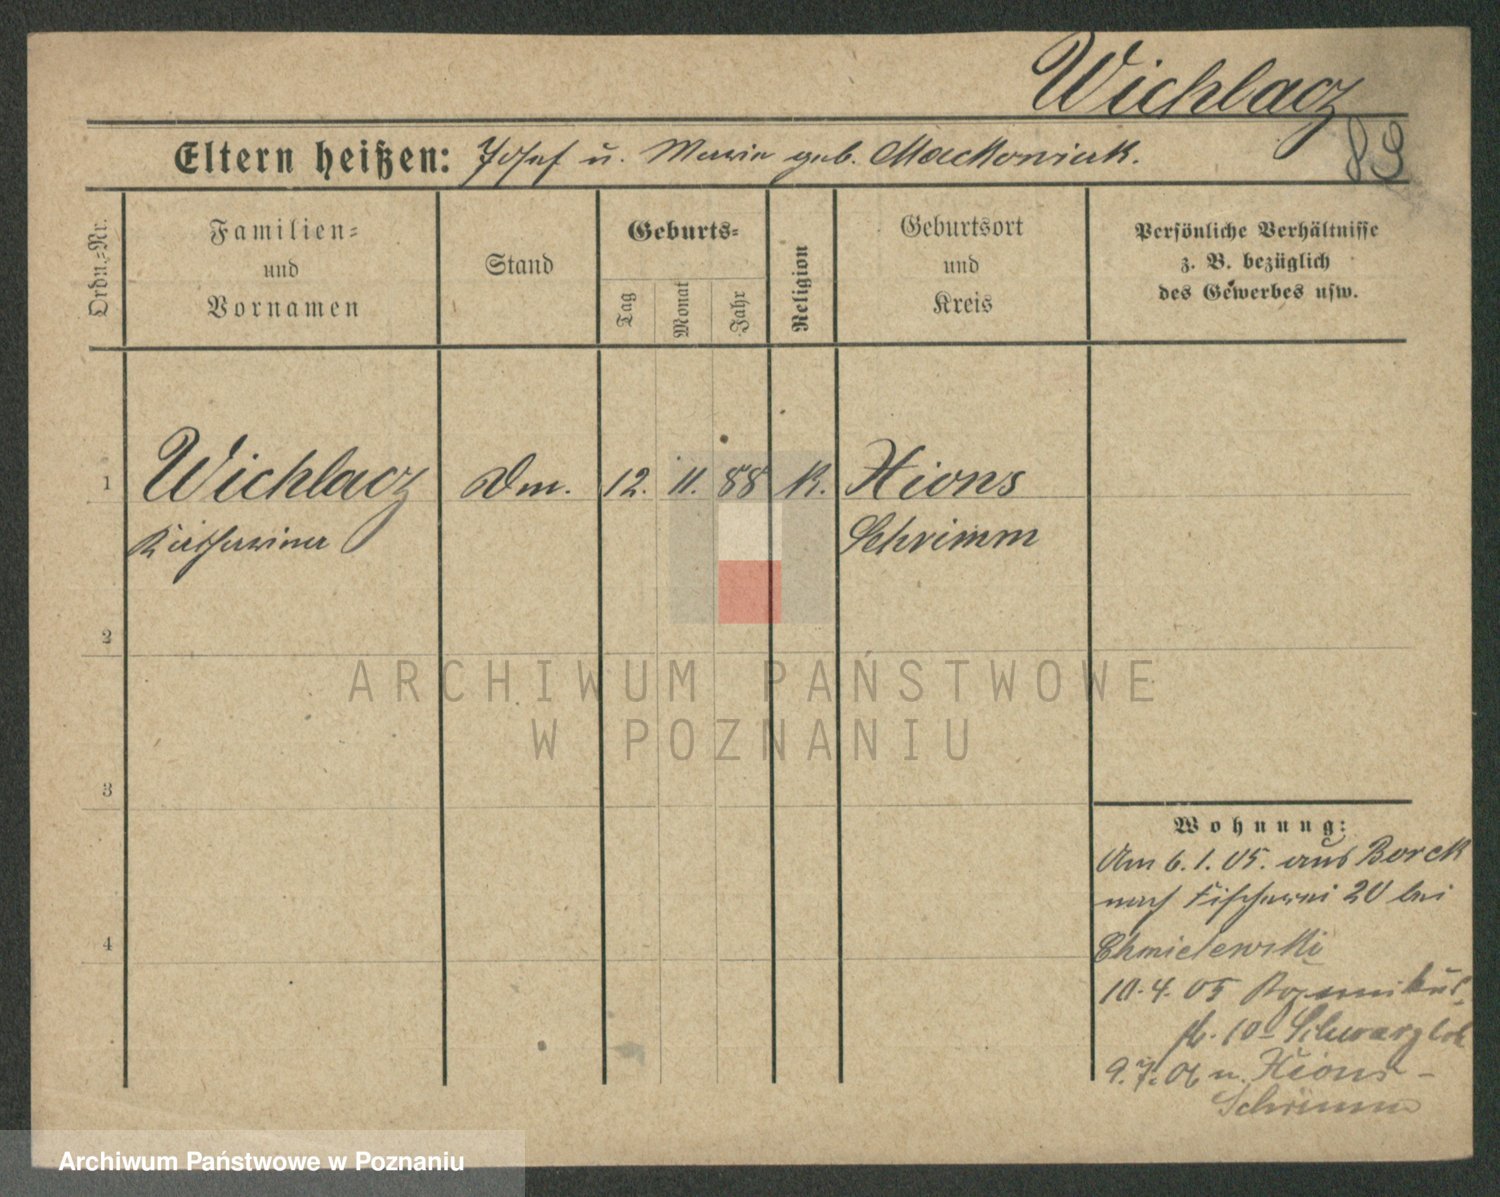 Wichlacz
89
Eltern heißen: Josef u. Marie geb. Mackowiak.
Ordn.-Nr.
Familien-
und
Vornamen
Stand
Geburts-
Tag
Monat
Jahr
Religion
Geburtsort
und
Kreis
Persönliche Verhältnisse
z. B. bezüglich
des Gewerbes usw.
1
Wichlacz
Katharina
Dm.
12.
11.
88
K.
Xions
Schrimm
2
3
4
Wohnung:
Am 6.1.05. aus Borek
nach Fischerei 20 bei
Chmielewski
10.4.05
10 Schwarz
9.7.06 n. Xions-
Schrimm
ARCHIWUM PAŃSTWOWE
W POZNANIU
Archiwum Państwowe w Poznaniu